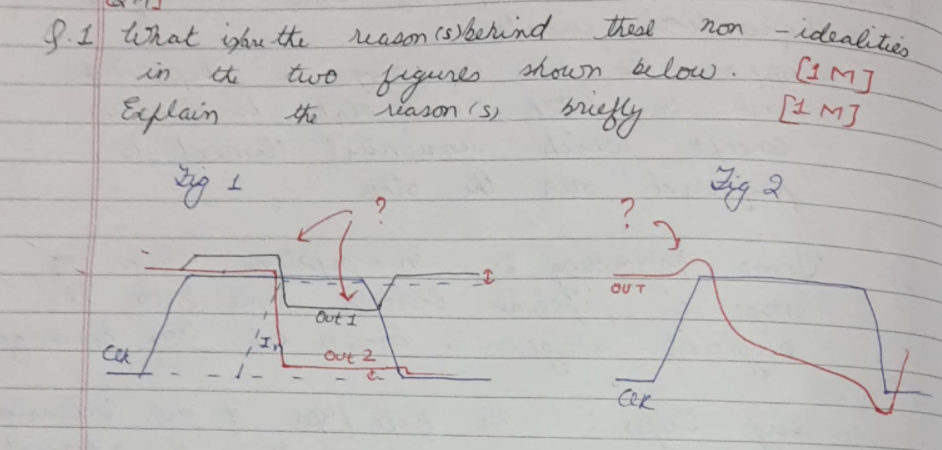 Q.1 What is/are the reason(s) behind these non-idealities
in the two figures shown below. [1 M]
Explain the reason(s) briefly [1 M]
Fig 1 Fig 2
? ?
OUT
Out 1
In
Clk Out 2
CLK